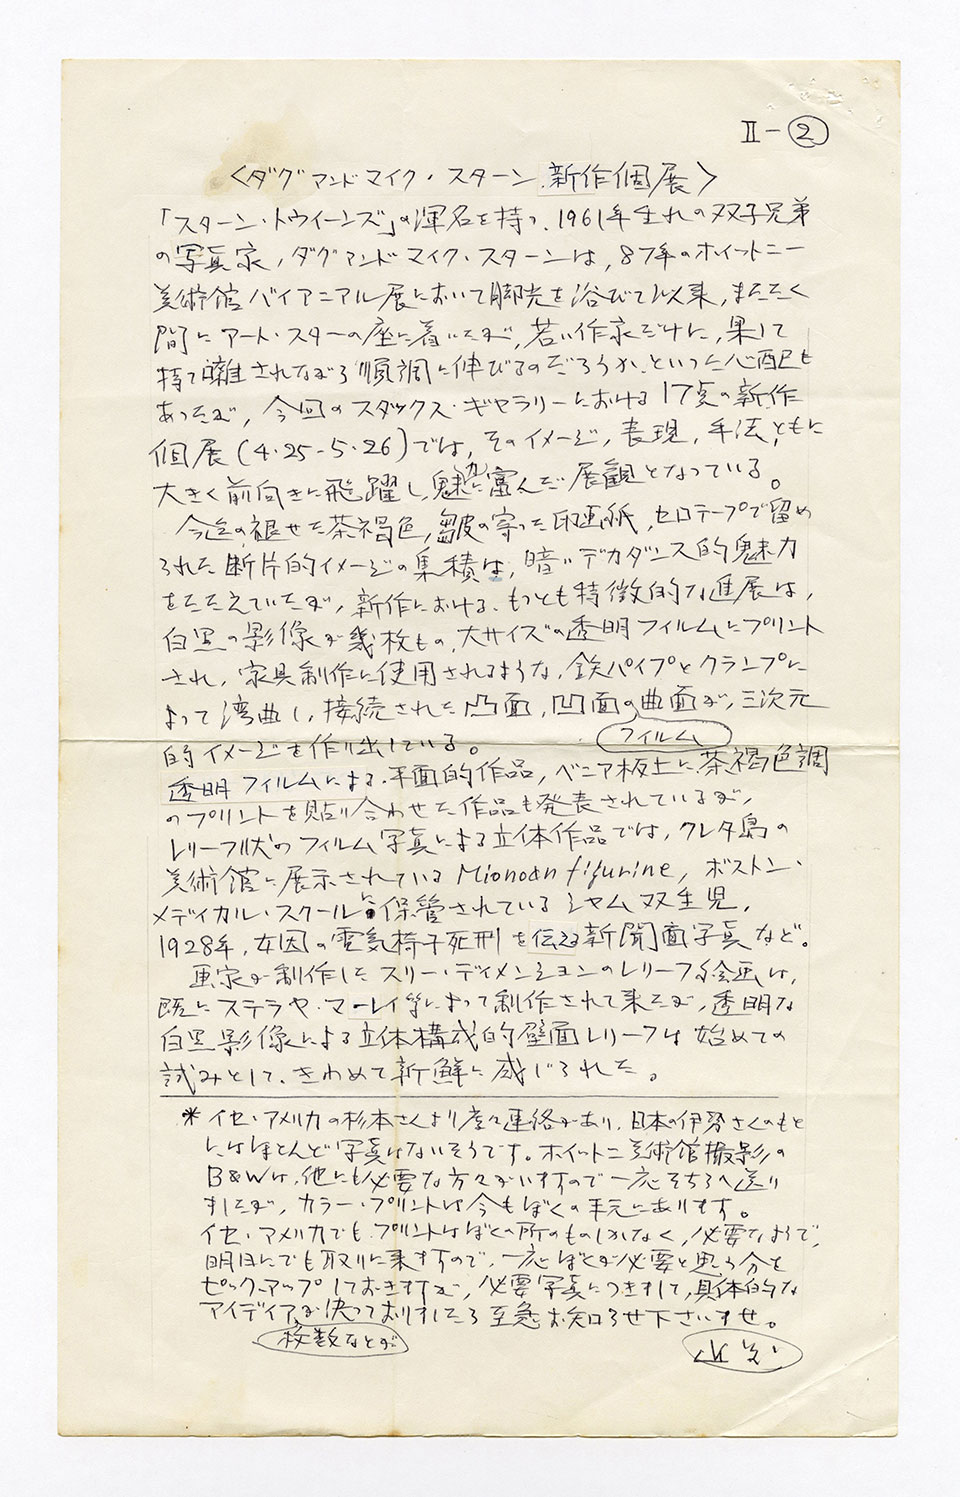 Ⅱ-②
〈ダグ アンド マイク・スターン 新作個展〉
「スターン・トウイーンズ」の渾名を持つ、1961年生れの双子兄弟
の写真家、ダグ アンド マイク・スターンは、87年のホイットニー
美術館 バイアニアル展において脚光を浴びて以来、またたく
間にアート・スターの座に着いたが、若い作家だけに、果して
持て囃されながら順調に伸びるのだろうか、といった心配も
あったが、今回のスタックス・ギャラリーにおける17点の新作
個展(4・25-5・26)では、そのイメージ、表現、手法ともに
大きく前向きに飛躍し、魅力に富んだ展観となっている。
今迄の褪せた茶褐色、皺の寄った印画紙、セロテープで留め
られた断片的イメージの集積は、暗いデカダンス的魅力
をたたえていたが、新作における、もっとも特徴的な進展は、
白黒の影像が幾枚もの、大サイズの透明フィルムにプリント
され、家具制作に使用されるような、鉄パイプとクランプに
よって湾曲し、接続された凸面、凹面の曲面が、三次元
フィルム
的イメージを作り出している。
透明フィルムによる平面的作品、ベニア板上に茶褐色調
のプリントを貼り合わせた作品も発表されているが、
レリーフ状のフィルム写真による立体作品では、クレタ島の
美術館に展示されている Mionoan figurine, ボストン・
メディカル・スクールに保管されているシャム双生児、
1928年、女囚の電気椅子死刑を伝える新聞面写真など。
画家が制作したスリー・ディメンションのレリーフ的絵画は、
既にステラや・マーレイ等によって制作されて来たが、透明な
白黒影像による立体構成的壁面レリーフは始めての
試みとして、きわめて新鮮に感じられた。
* イセ・アメリカの杉本さんより度々連絡があり、日本の伊勢さんのもと
にはほとんど写真はないそうです。ホイットニー美術館撮影の
B&Wは、他にも必要な方々がいますので一応そちらへ送り
ましたが、カラー・プリントは今もぼくの手元にあります。
イセ・アメリカでも、プリントはぼくの所のものしかなく、必要なようで、
明日にでも取りに来ますので、一応ぼくが必要と思う分を
ピックアップしておきますが、必要写真につきまして、具体的な
アイディアが決っておりましたら至急お知らせ下さいませ。
枚数などが